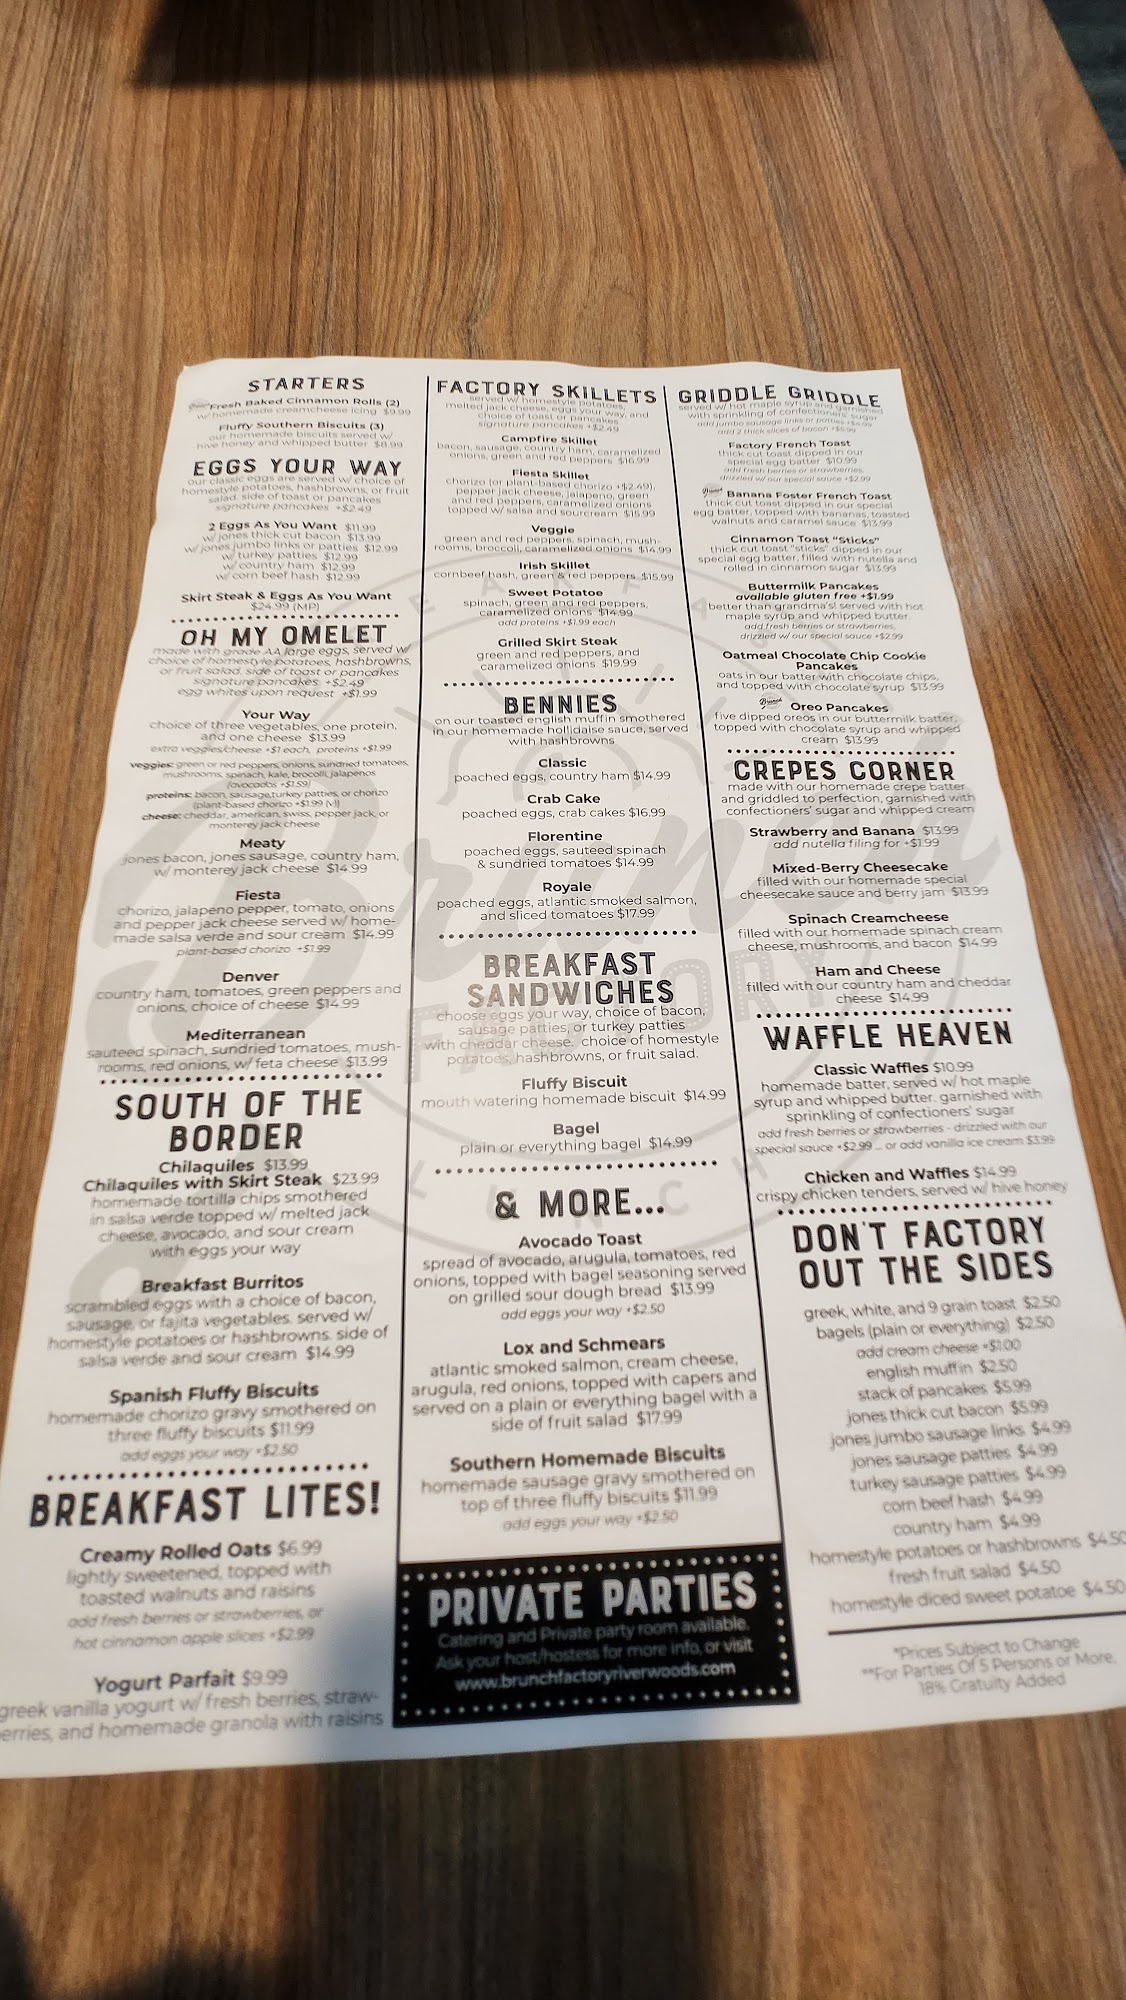 STARTERS
Fresh Baked Cinnamon Rolls (2)
w/ homemade creamcheese icing $9.99
Fluffy Southern Biscuits (3)
our homemade biscuits served w/
hive honey and whipped butter $8.99
EGGS YOUR WAY
our classic eggs are served w/ choice of
homestyle potatoes, hashbrowns, or fruit
salad. side of toast or pancakes
signature pancakes +$2.49
2 Eggs As You Want $11.99
w/ jones thick cut bacon $13.99
w/ jones jumbo links or patties $12.99
w/ turkey patties $12.99
w/ country ham $12.99
w/ corn beef hash $12.99
Skirt Steak & Eggs As You Want
$24.99 (MP)
OH MY OMELET
made with grade AA large eggs, served w/
choice of homestyle potatoes, hashbrowns,
or fruit salad. side of toast or pancakes
signature pancakes +$2.49
egg whites upon request +$1.99
Your Way
choice of three vegetables, one protein,
and one cheese $13.99
extra veggies/cheese +$1 each, proteins +$1.99
veggies: green or red peppers, onions, sundried tomatoes,
mushrooms, spinach, kale, brocolli, jalapenos
(avocados +$1.59)
proteins: bacon, sausage,turkey patties, or chorizo
(plant-based chorizo +$1.99 (v))
cheese: cheddar, american, swiss, pepper jack, or
monterey jack cheese
Meaty
jones bacon, jones sausage, country ham,
w/ monterey jack cheese $14.99
Fiesta
chorizo, jalapeno pepper, tomato, onions
and pepper jack cheese served w/ home-
made salsa verde and sour cream $14.99
plant-based chorizo +$1.99
Denver
country ham, tomatoes, green peppers and
onions, choice of cheese $14.99
Mediterranean
sauteed spinach, sundried tomatoes, mush-
rooms, red onions, w/ feta cheese $13.99
SOUTH OF THE
BORDER
Chilaquiles $13.99
Chilaquiles with Skirt Steak $23.99
homemade tortilla chips smothered
in salsa verde topped w/ melted jack
cheese, avocado, and sour cream
with eggs your way
Breakfast Burritos
scrambled eggs with a choice of bacon,
sausage, or fajita vegetables. served w/
homestyle potatoes or hashbrowns. side of
salsa verde and sour cream $14.99
Spanish Fluffy Biscuits
homemade chorizo gravy smothered on
three fluffy biscuits $11.99
add eggs your way +$2.50
BREAKFAST LITES!
Creamy Rolled Oats $6.99
lightly sweetened, topped with
toasted walnuts and raisins
add fresh berries or strawberries, or
hot cinnamon apple slices +$2.99
Yogurt Parfait $9.99
greek vanilla yogurt w/ fresh berries, straw-
erries, and homemade granola with raisins
FACTORY SKILLETS
served w/ homestyle potatoes,
melted jack cheese, eggs your way, and
choice of toast or pancakes
signature pancakes +$2.49
Campfire Skillet
bacon, sausage, country ham, caramelized
onions, green and red peppers $16.99
Fiesta Skillet
chorizo (or plant-based chorizo +$2.49),
pepper jack cheese, jalapeno, green
and red peppers, caramelized onions
topped w/ salsa and sourcream $15.99
Veggie
green and red peppers, spinach, mush-
rooms, broccoli, caramelized onions $14.99
Irish Skillet
cornbeef hash, green & red peppers $15.99
Sweet Potatoe
spinach, green and red peppers,
caramelized onions $14.99
add proteins +$1.99 each
Grilled Skirt Steak
green and red peppers, and
caramelized onions $19.99
BENNIES
on our toasted english muffin smothered
in our homemade hollidaise sauce, served
with hashbrowns
Classic
poached eggs, country ham $14.99
Crab Cake
poached eggs, crab cakes $16.99
Florentine
poached eggs, sauteed spinach
& sundried tomatoes $14.99
Royale
poached eggs, atlantic smoked salmon,
and sliced tomatoes $17.99
BREAKFAST
SANDWICHES
choose eggs your way, choice of bacon,
sausage patties, or turkey patties
with cheddar cheese. choice of homestyle
potatoes, hashbrowns, or fruit salad.
Fluffy Biscuit
mouth watering homemade biscuit $14.99
Bagel
plain or everything bagel $14.99
& MORE...
Avocado Toast
spread of avocado, arugula, tomatoes, red
onions, topped with bagel seasoning served
on grilled sour dough bread $13.99
add eggs your way +$2.50
Lox and Schmears
atlantic smoked salmon, cream cheese,
arugula, red onions, topped with capers and
served on a plain or everything bagel with a
side of fruit salad $17.99
Southern Homemade Biscuits
homemade sausage gravy smothered on
top of three fluffy biscuits $11.99
add eggs your way +$2.50
PRIVATE PARTIES
Catering and Private party room available.
Ask your host/hostess for more info, or visit
www.brunchfactoryriverwoods.com
GRIDDLE GRIDDLE
served w/ hot maple syrup and garnished
with sprinkling of confectioners' sugar
add jumbo sausage links or patties +$4.99
add 2 thick slices of bacon +$5.99
Factory French Toast
thick cut toast dipped in our
special egg batter $10.99
add fresh berries or strawberries,
drizzled w/ our special sauce +$2.99
Brunch Banana Foster French Toast
thick cut toast dipped in our special
egg batter, topped with bananas, toasted
walnuts and caramel sauce $13.99
Cinnamon Toast "Sticks"
thick cut toast "sticks" dipped in our
special egg batter, filled with nutella and
rolled in cinnamon sugar $13.99
Buttermilk Pancakes
available gluten free +$1.99
better than grandma's! served with hot
maple syrup and whipped butter.
add fresh berries or strawberries,
drizzled w/ our special sauce +$2.99
Oatmeal Chocolate Chip Cookie
Pancakes
oats in our batter with chocolate chips,
and topped with chocolate syrup $13.99
Brunch Oreo Pancakes
five dipped oreos in our buttermilk batter,
topped with chocolate syrup and whipped
cream $13.99
CREPES CORNER
made with our homemade crepe batter
and griddled to perfection, garnished with
confectioners' sugar and whipped cream
Strawberry and Banana $13.99
add nutella filing for +$1.99
Mixed-Berry Cheesecake
filled with our homemade special
cheesecake sauce and berry jam $13.99
Spinach Creamcheese
filled with our homemade spinach cream
cheese, mushrooms, and bacon $14.99
Ham and Cheese
filled with our country ham and cheddar
cheese $14.99
WAFFLE HEAVEN
Classic Waffles $10.99
homemade batter, served w/ hot maple
syrup and whipped butter. garnished with
sprinkling of confectioners' sugar
add fresh berries or strawberries - drizzled with our
special sauce +$2.99 ... or add vanilla ice cream $3.99
Chicken and Waffles $14.99
crispy chicken tenders, served w/ hive honey
DON'T FACTORY
OUT THE SIDES
greek, white, and 9 grain toast $2.50
bagels (plain or everything) $2.50
add cream cheese +$1.00
english muffin $2.50
stack of pancakes $5.99
jones thick cut bacon $5.99
jones jumbo sausage links $4.99
jones sausage patties $4.99
turkey sausage patties $4.99
corn beef hash $4.99
country ham $4.99
homestyle potatoes or hashbrowns $4.50
fresh fruit salad $4.50
homestyle diced sweet potatoe $4.50
*Prices Subject to Change
**For Parties Of 5 Persons or More,
18% Gratuity Added
Brunch
FACTORY